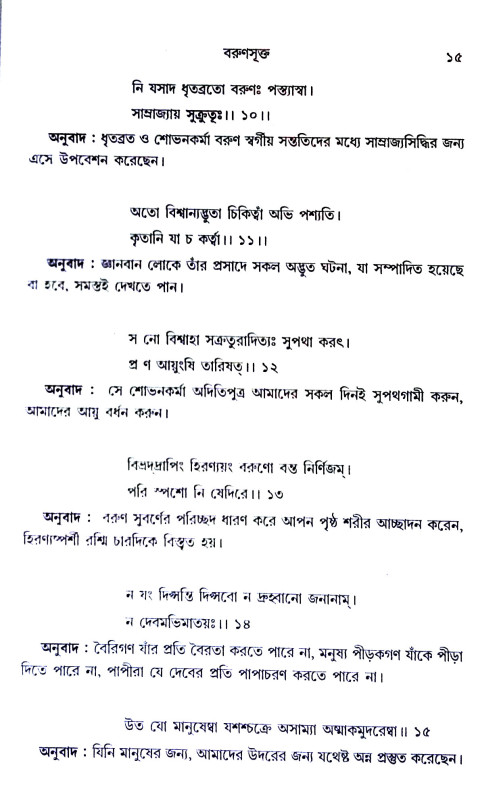 বরুণসূক্ত ১৫
নি যসাদ ধৃতব্রতো বরুণঃ পস্ত্যাস্বা।
সাম্রাজ্যায় সুক্রুতৃঃ।। ১০।।
অনুবাদ : ধৃতব্রত ও শোভনকর্মা বরুণ স্বর্গীয় সন্ততিদের মধ্যে সাম্রাজ্যসিদ্ধির জন্য
এসে উপবেশন করেছেন।
অতো বিশ্বান্যদ্ভুতা চিকিত্বাঁ অভি পশ্যতি।
কৃতানি যা চ কর্ত্বা।। ১১।।
অনুবাদ : জ্ঞানবান লোকে তাঁর প্রসাদে সকল অদ্ভুত ঘটনা, যা সম্পাদিত হয়েছে
বা হবে, সমস্তই দেখতে পান।
স নো বিশ্বাহা সক্রতুরাদিত্যঃ সুপথা করৎ।
প্র ণ আয়ুংষি তারিষত্।। ১২
অনুবাদ : সে শোভনকর্মা অদিতিপুত্র আমাদের সকল দিনই সুপথগামী করুন,
আমাদের আয়ু বর্ধন করুন।
বিভ্রদদ্রাপিং হিরণ্যয়ং বরুণো বস্ত নির্ণিজম্।
পরি স্পশো নি ষেদিরে।। ১৩
অনুবাদ : বরুণ সুবর্ণের পরিচ্ছদ ধারণ করে আপন পৃষ্ঠ শরীর আচ্ছাদন করেন,
হিরণ্যস্পর্শী রশ্মি চারদিকে বিস্তৃত হয়।
ন যং দিপ্সন্তি দিপ্সবো ন দ্রুহ্বানো জনানাম্।
ন দেবমভিমাতয়ঃ।। ১৪
অনুবাদ : বৈরিগণ যাঁর প্রতি বৈরতা করতে পারে না, মনুষ্য পীড়কগণ যাঁকে পীড়া
দিতে পারে না, পাপীরা যে দেবের প্রতি পাপাচরণ করতে পারে না।
উত যো মানুষেষ্বা যশশ্চক্রে অসাম্যা অস্মাকমুদরেষ্বা॥ ১৫
অনুবাদ : যিনি মানুষের জন্য, আমাদের উদরের জন্য যথেষ্ট অন্ন প্রস্তুত করেছেন।